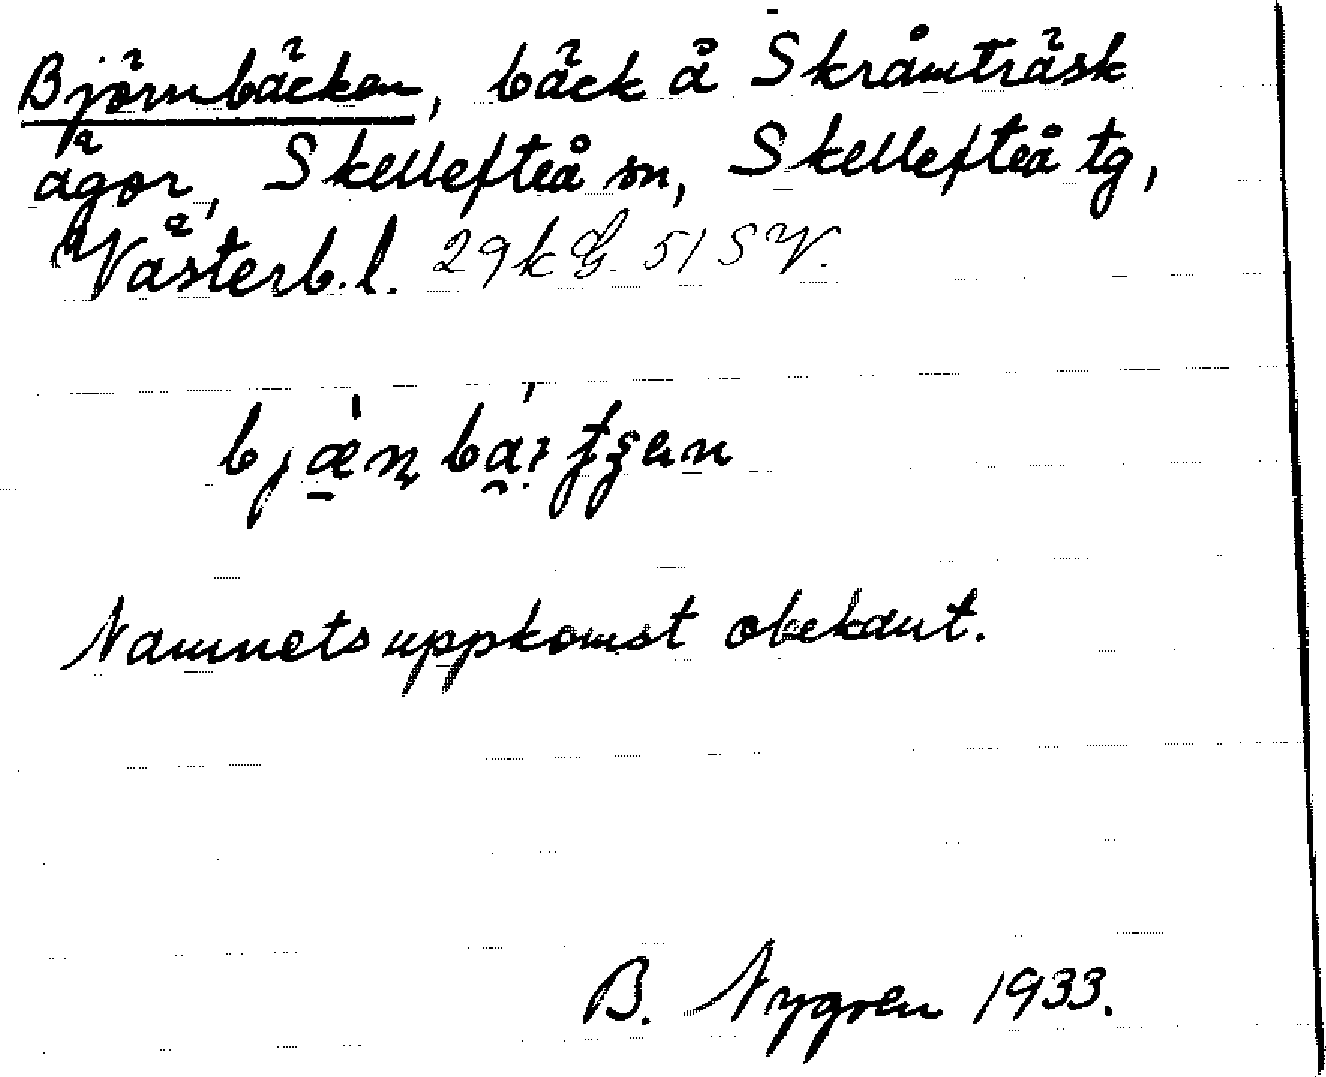 Björnbäcken, bäck å Skråmträsk
ägor, Skellefteå sn, Skellefteå tg,
Västerb.l. 29k 51 SV.
Namnets uppkomst obekant.
B. Nygren 1933.